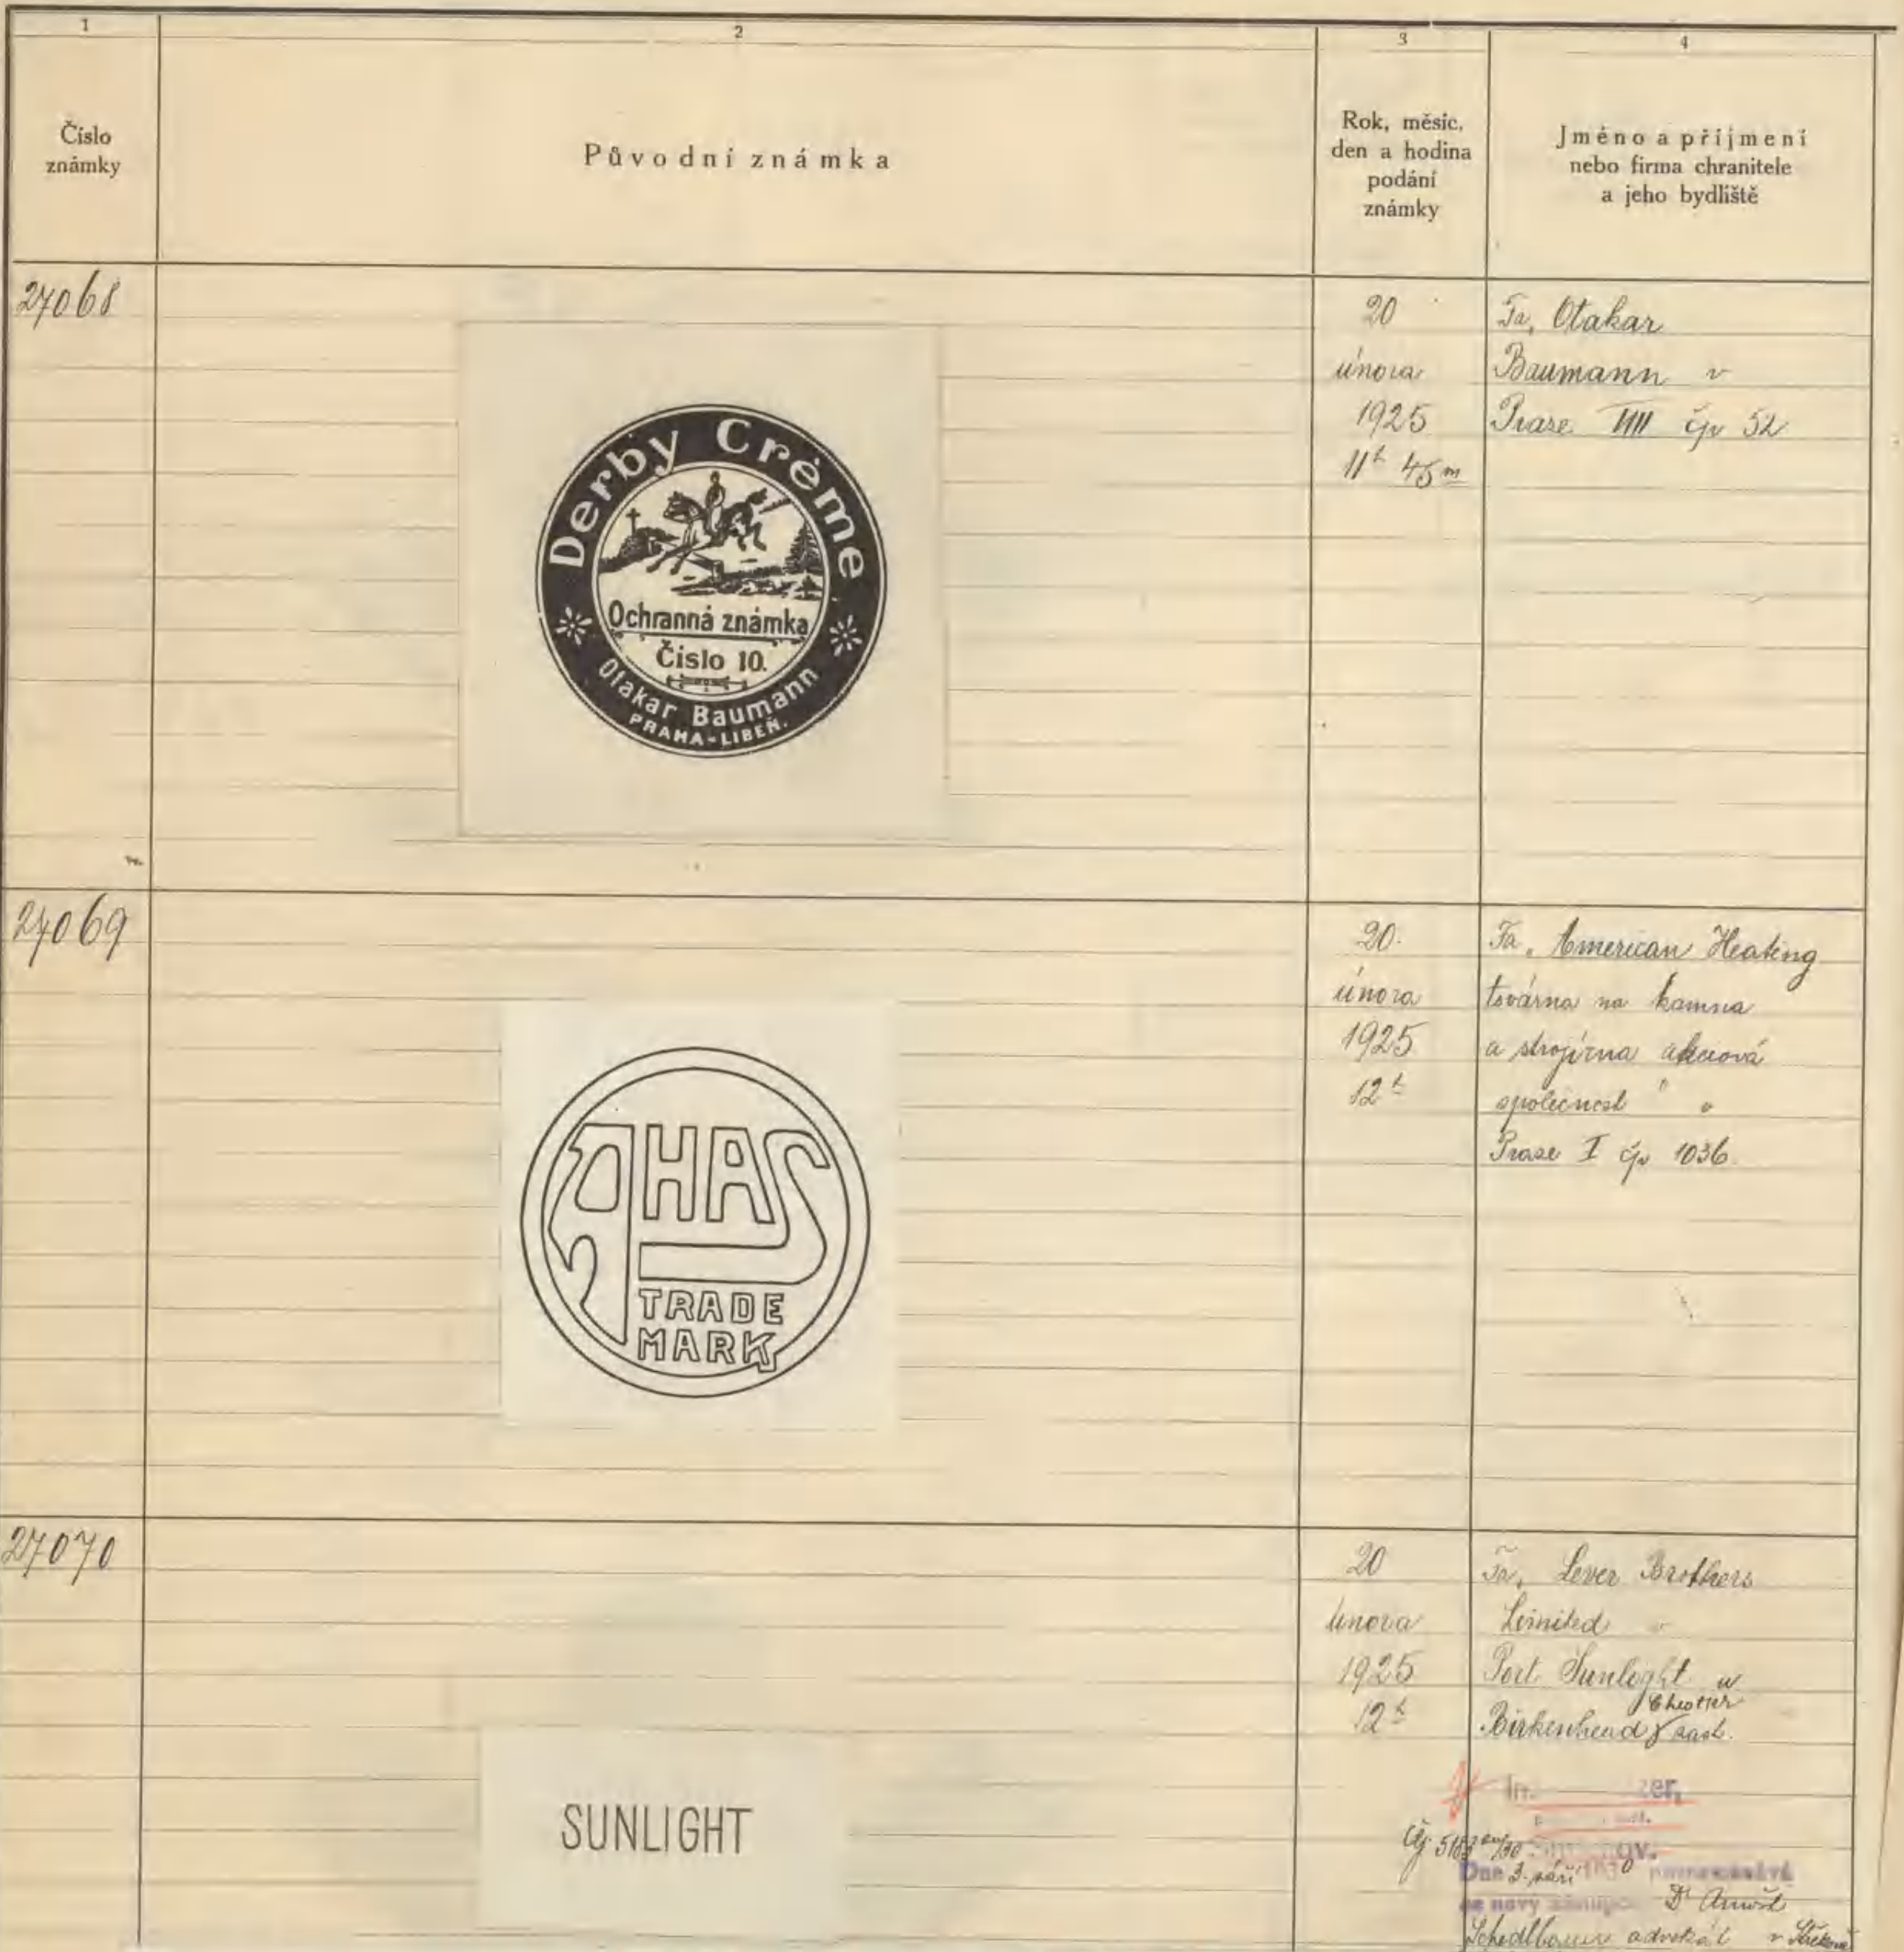 1
2
3
4
Číslo
známky
Původní známka
Rok, měsíc,
den a hodina
podání
známky
Jméno a příjmení
nebo firma chranitele
a jeho bydliště
27068
Derby Crème
Ochranná známka
Číslo 10.
Otakar Baumann
PRAHA-LIBEŇ.
20
února
1925
11h 45m
Fa, Otakar
Baumann v
Praze VIII čp 52
27069
AHAS
TRADE
MARK
20.
února
1925
12h
Fa „American Heating
továrna na kamna
a strojírna akciová
společnost" v
Praze I čp 1036
27070
SUNLIGHT
20
února
1925
12h
Fa, Lever Brothers
Limited v
Port Sunlight u
Chester
Birkenhead
Dne 3. září
se nový Dr Arnošt
Schedlbauer advokát v